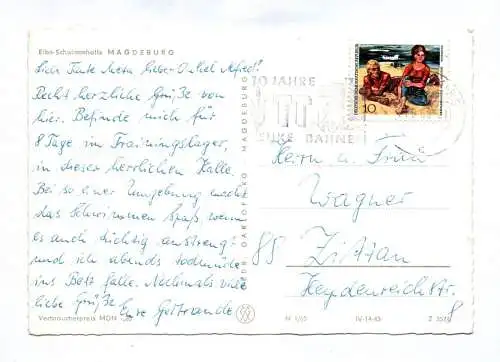 Elbe-Schwimmhalle MAGDEBURG
Liebe Tante Meta, lieber Onkel Alfred!
Recht herzliche Grüße von
hier. Befinde mich für
8 Tage im Trainingslager,
in dieser herrlichen Halle.
Bei so einer Umgebung macht
das Schwimmen Spaß, wenn
es auch tüchtig anstrengt
und ich abends todmüde
ins Bett falle. Nochmals viele
liebe Grüße Eure Gertraude
Verbraucherpreis MDN
MAGDEBURG
10 JAHRE
BAHNEN
10
Herrn u. Frau
Wagner
85 Zittau
Heydenreichstr.
8
N 1/65 IV-14-45